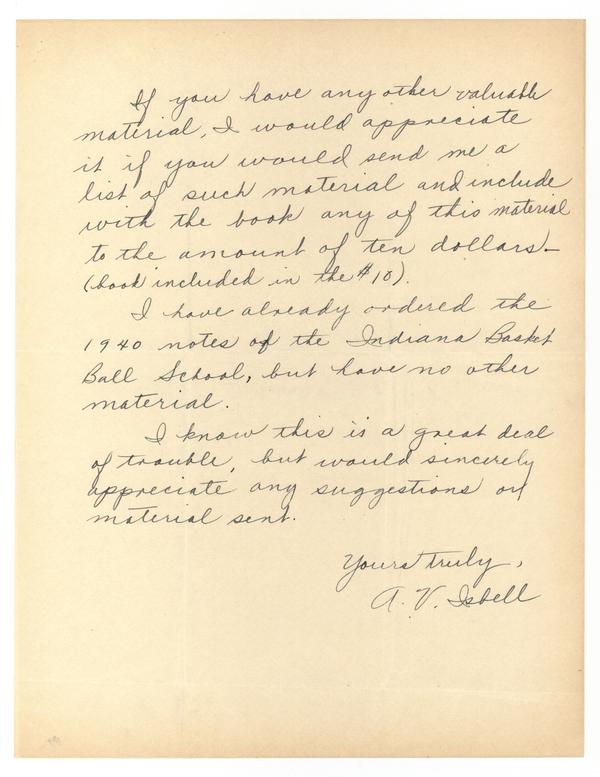 If you have any other valuable
material, I would appreciate
it if you would send me a
list of such material and include
with the book any of this material
to the amount of ten dollars—
(book included in the $10).
I have already ordered the
1940 notes of the Indiana Basket
Ball School, but have no other
material.
I know this is a great deal
of trouble, but would sincerely
appreciate any suggestions or
material sent.
Yours truly,
A. V. Isbell